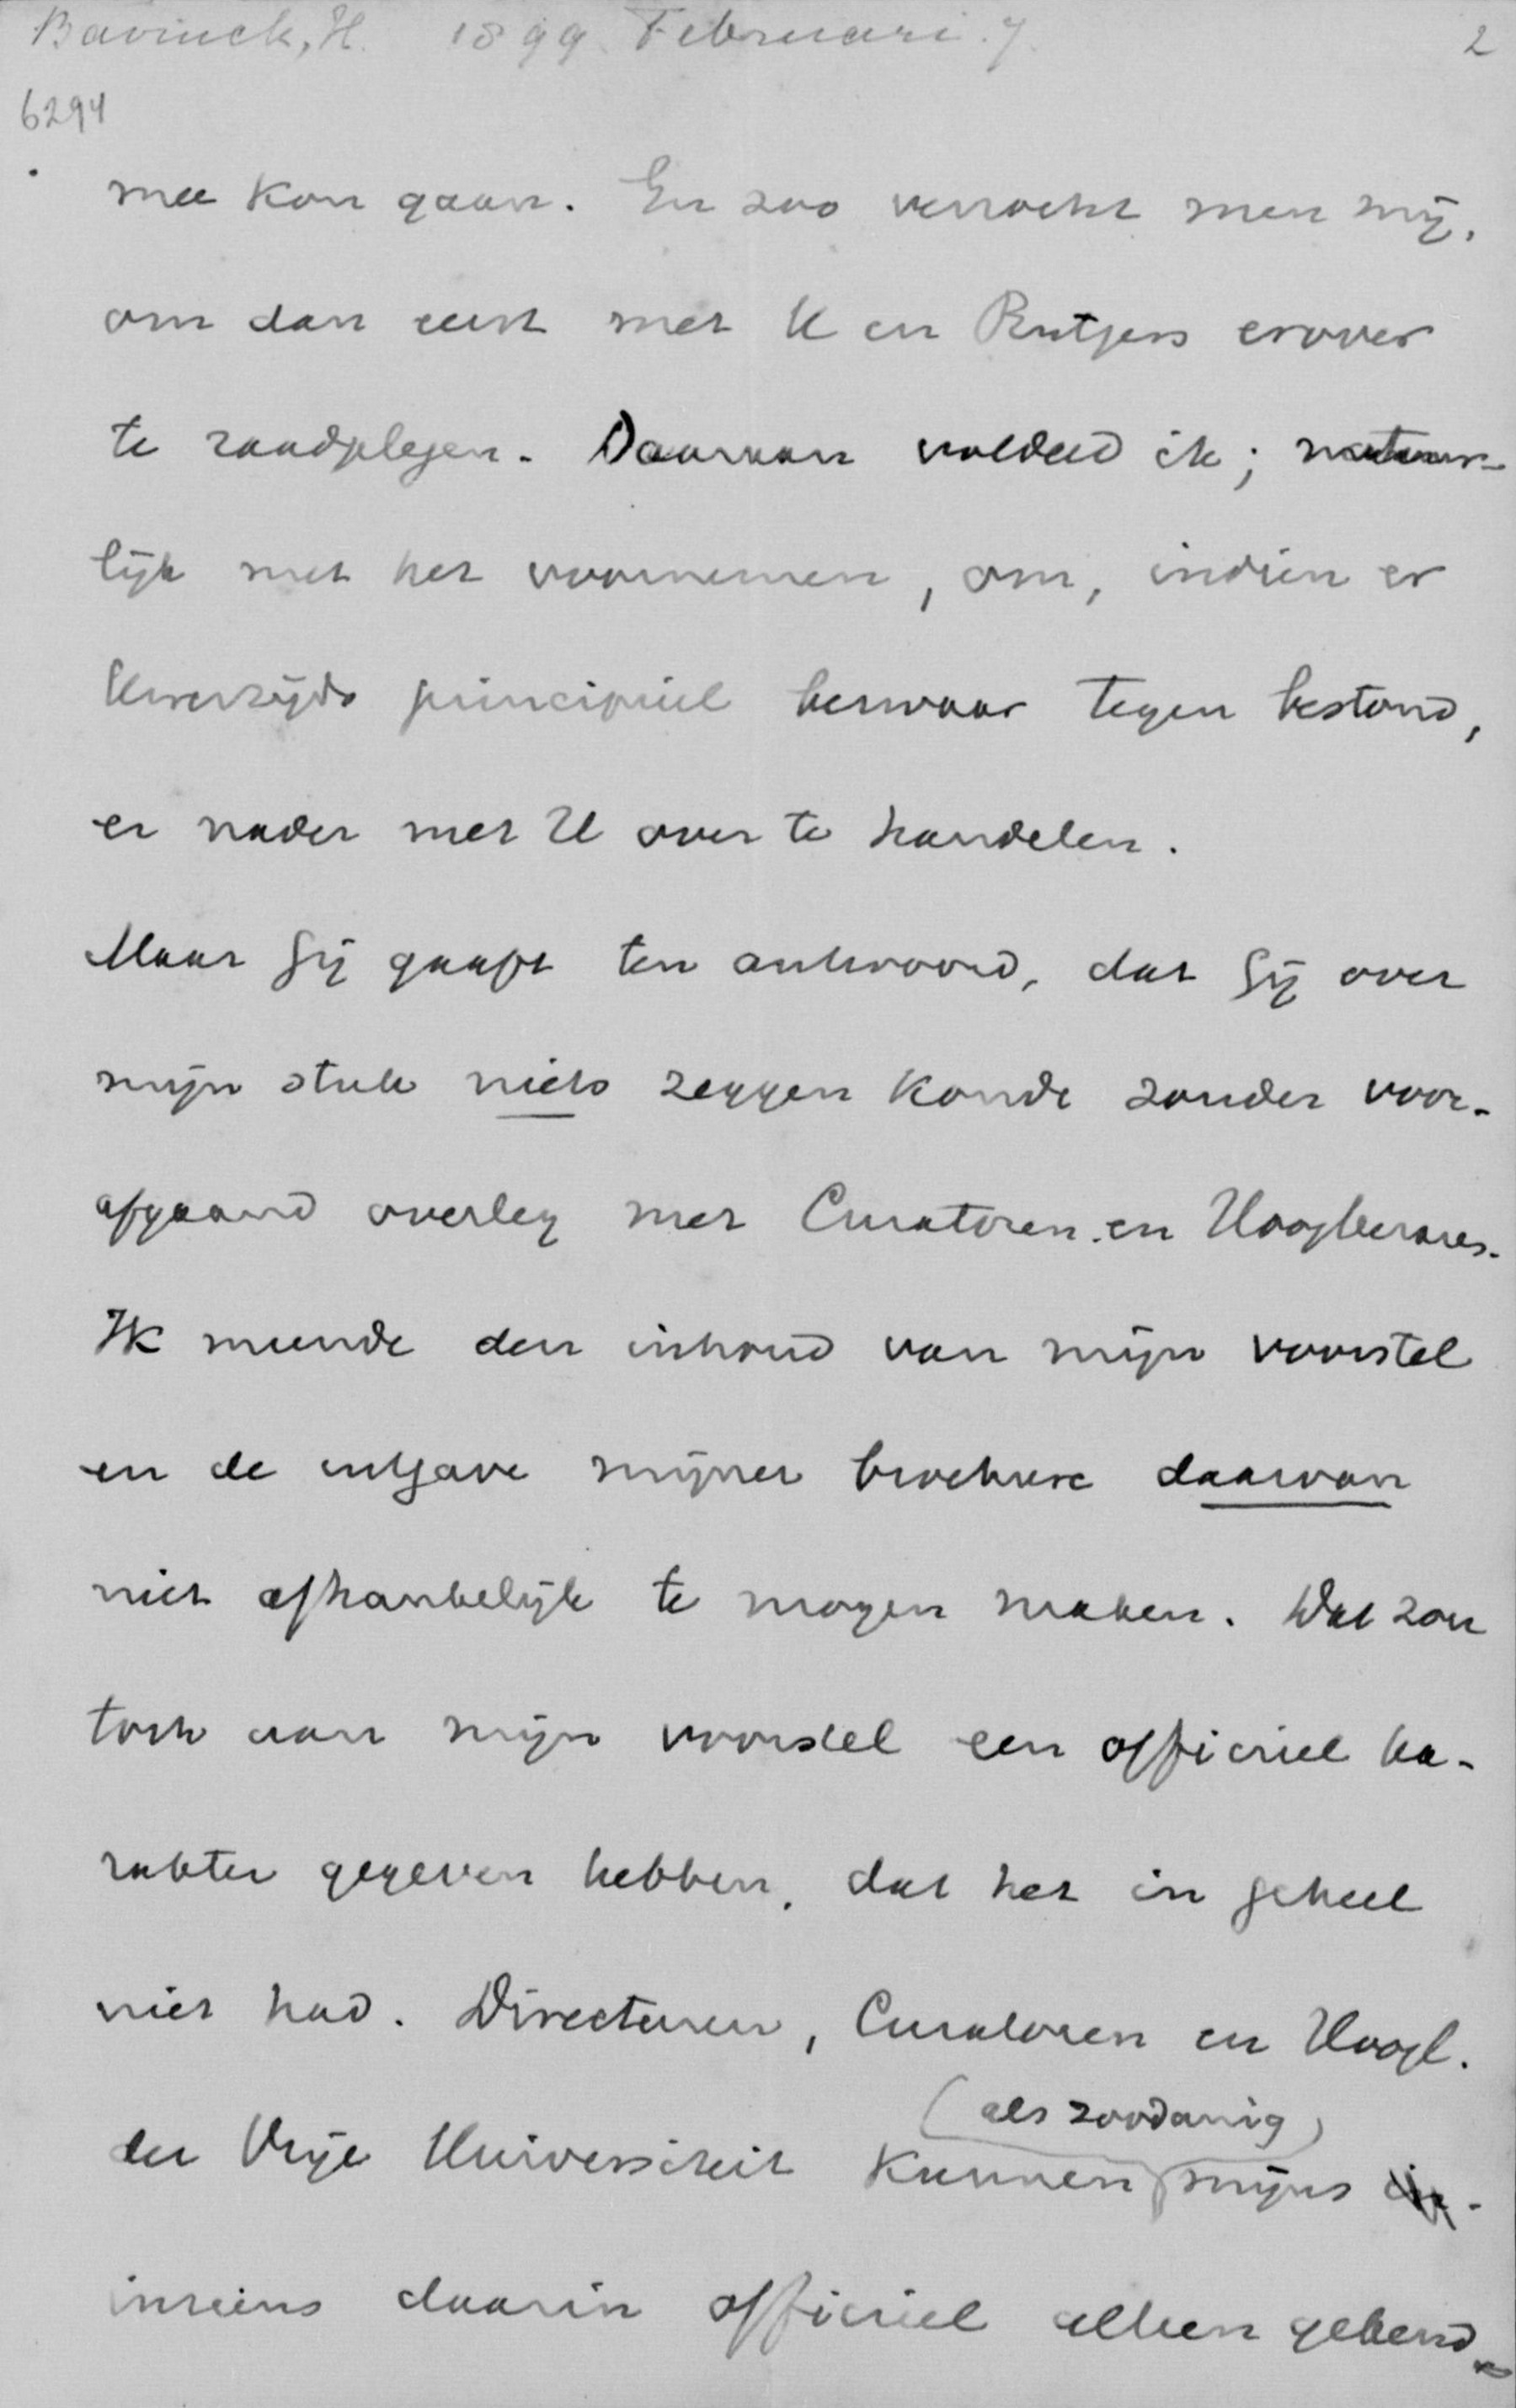 Bavinck, H. 1899 Februari 7. 2
6294
mee kon gaan. En zoo verzocht men mij,
om dan eerst met U en Rutgers erover
te raadplegen. Daaraan voldeed ik; natuur-
lijk met het voornemen, om, indien er
Uwerzijds principieel bezwaar tegen bestond,
er nader met U over te handelen.
Maar Gij gaaft ten antwoord, dat Gij over
mijn stuk niets zeggen konde zonder voor-
afgaand overleg met Curatoren en Hoogleeraren.
Ik meende den inhoud van mijn voorstel
en de uitgave mijner brochure daarvan
niet afhankelijk te mogen maken. Dat zou
toch aan mijn voorstel een officieel ka-
rakter gegeven hebben, dat het in geheel
niet had. Directeuren, Curatoren en Hoogl.
(als zoodanig)
der Vrije Universiteit kunnen mijns
inziens daarin officieel alleen gekend